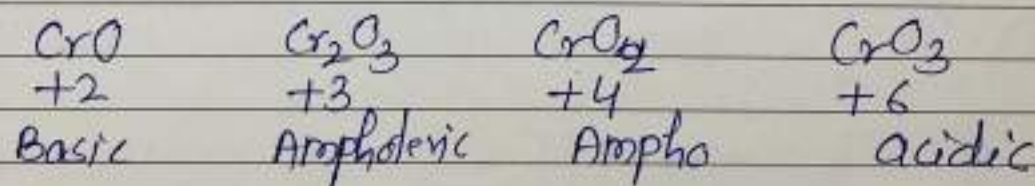 CrO Cr₂O₃ CrO₂ CrO₃
+2 +3 +4 +6
Basic Amphoteric Ampho acidic